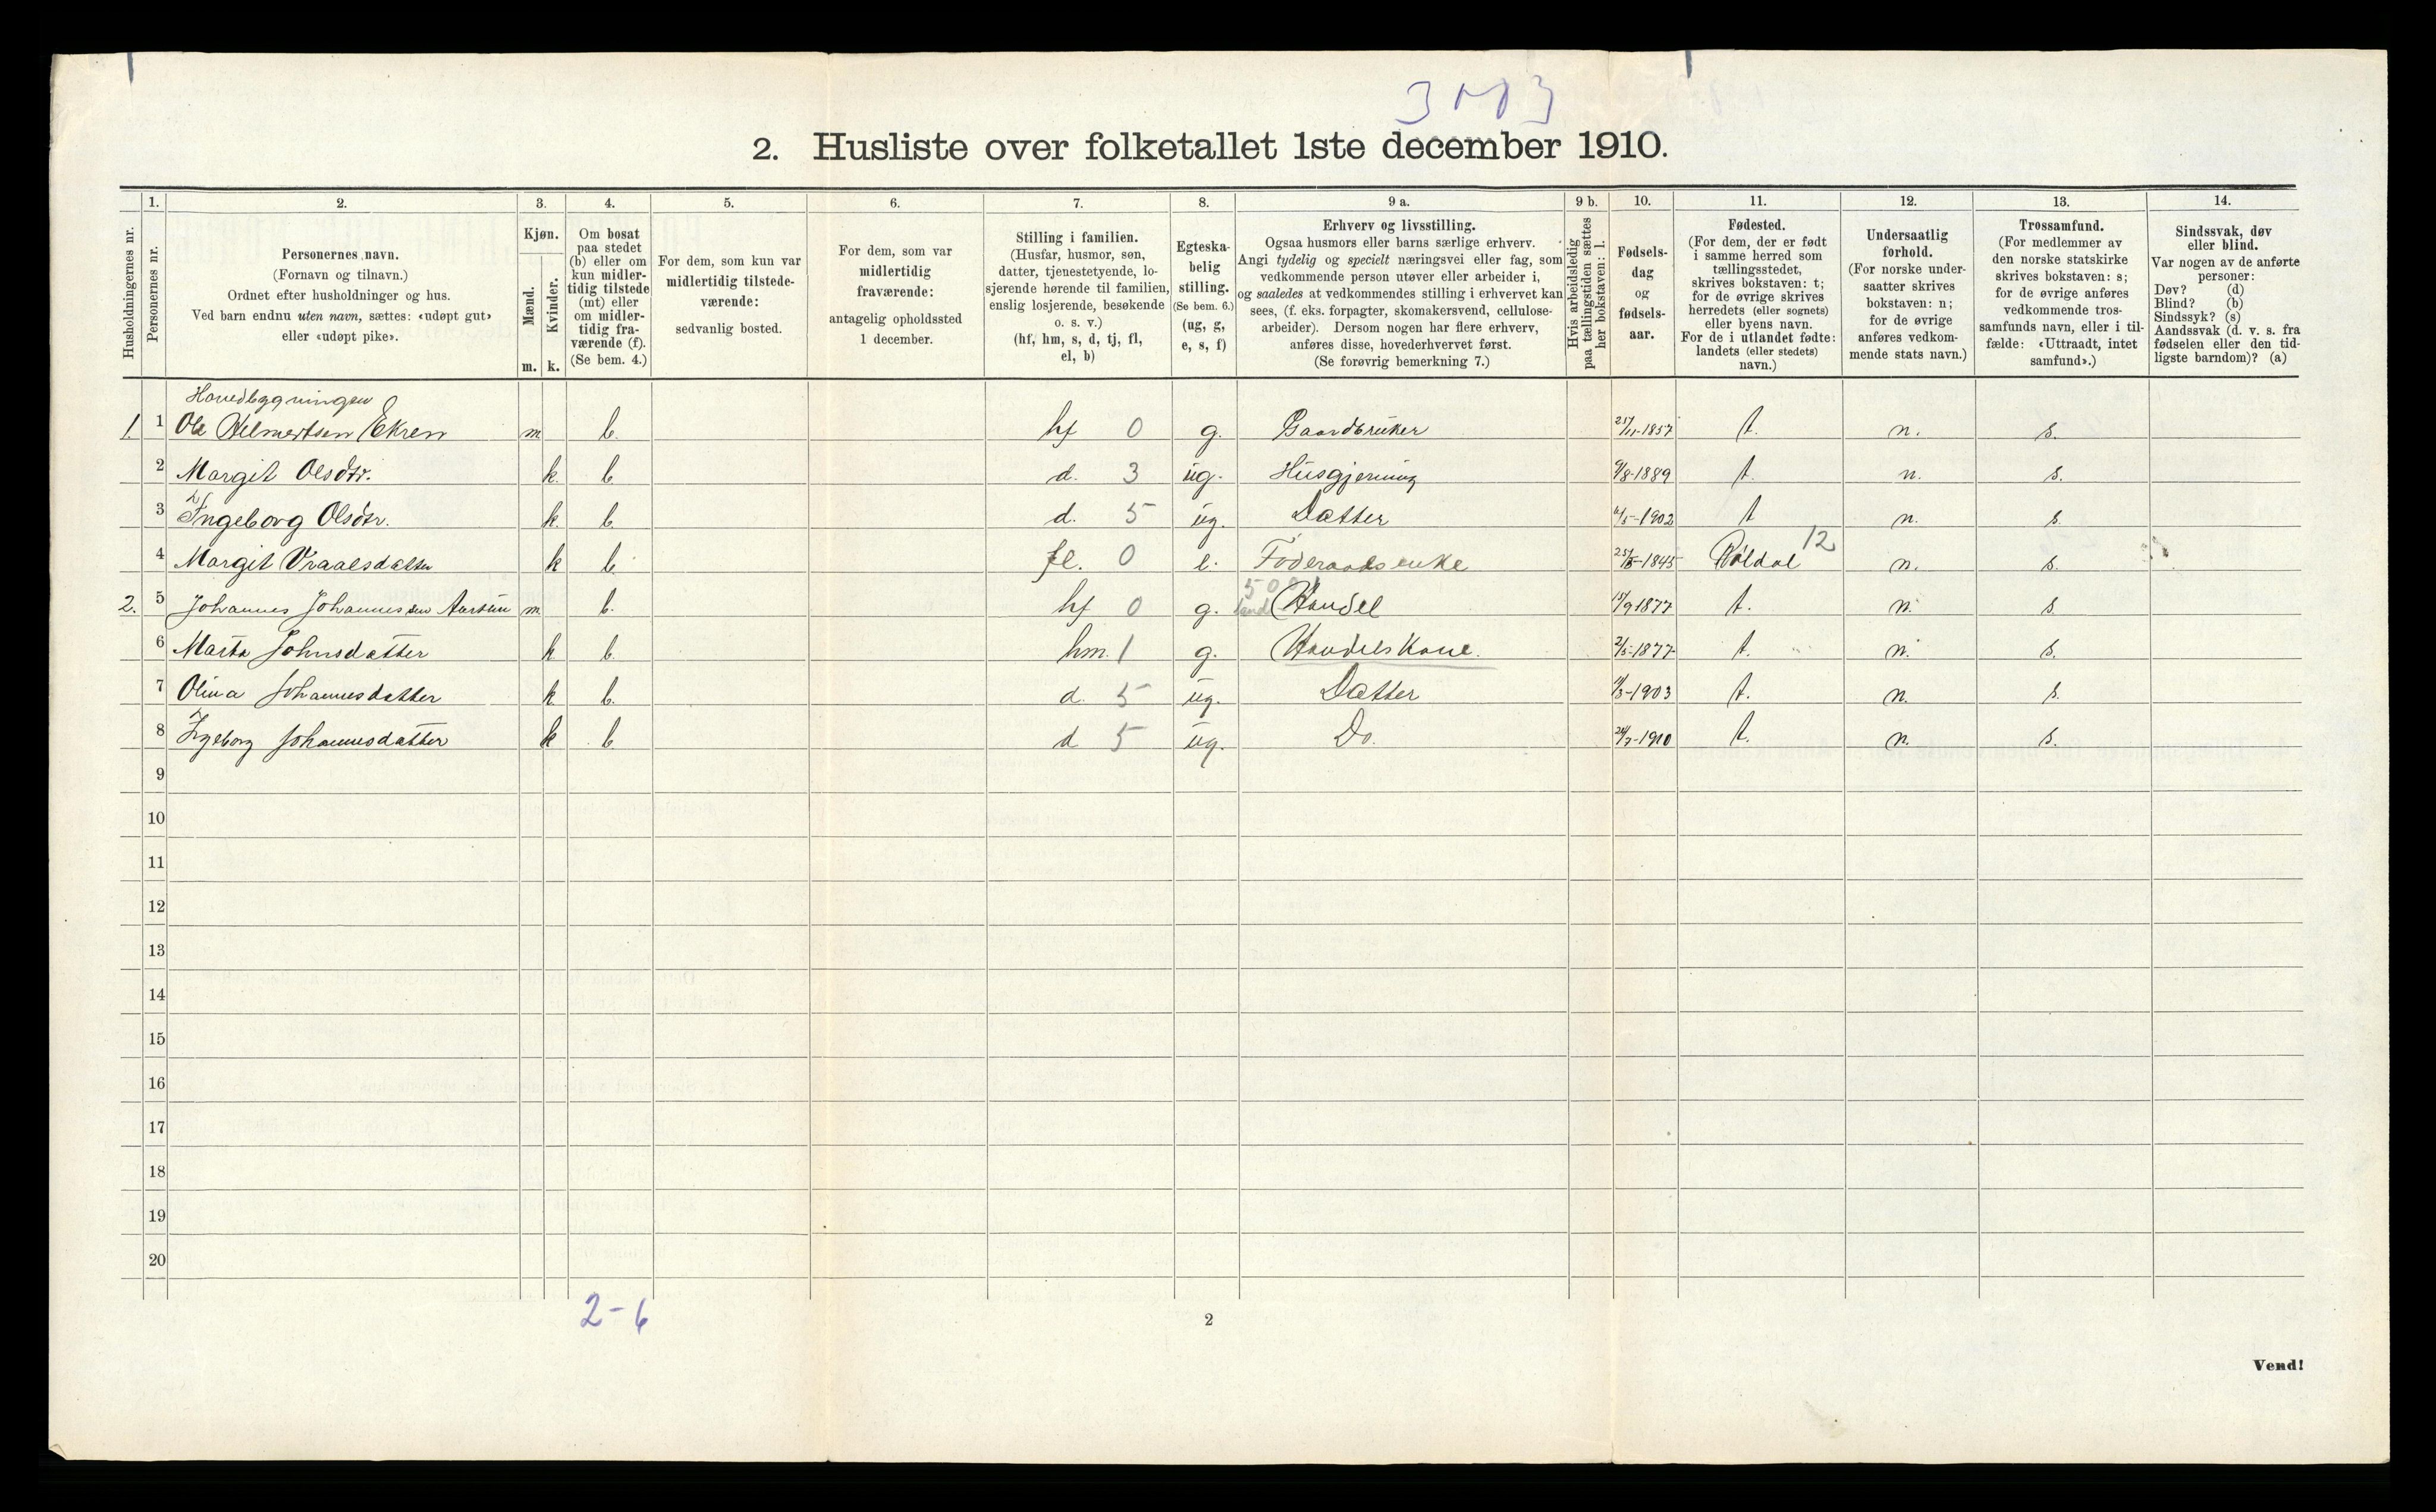 2. Husliste over folketallet 1ste december 1910.
Husholdningernes nr.
1.
Personernes nr.
2.
Personernes navn.
(Fornavn og tilnavn.)
Ordnet efter husholdninger og hus.
Ved barn endnu uten navn, sættes: «udøpt gut»
eller «udøpt pike».
3.
Kjøn.
Mænd.
Kvinder.
m. k.
4.
Om bosat
paa stedet
(b) eller om
kun midler-
tidig tilstede
(mt) eller
om midler-
tidig fra-
værende (f).
(Se bem. 4.)
5.
For dem, som kun var
midlertidig tilstede-
værende:
sedvanlig bosted.
6.
For dem, som var
midlertidig
fraværende:
antagelig opholdssted
1 december.
7.
Stilling i familien.
(Husfar, husmor, søn,
datter, tjenestetyende, lo-
sjerende hørende til familien,
enslig losjerende, besøkende
o. s. v.)
(hf, hm, s, d, tj, fl,
el, b)
8.
Egteska-
belig
stilling.
(Se bem. 6.)
(ug, g,
e, s, f)
9 a.
Erhverv og livsstilling.
Ogsaa husmors eller barns særlige erhverv.
Angi tydelig og specielt næringsvei eller fag, som
vedkommende person utøver eller arbeider i,
og saaledes at vedkommendes stilling i erhvervet kan
sees, (f. eks. forpagter, skomakersvend, cellulose-
arbeider). Dersom nogen har flere erhverv,
anføres disse, hovederhvervet først.
(Se forøvrig bemerkning 7.)
9 b.
Hvis arbeidsledig
paa tællingstiden sættes
her bokstaven: l.
10.
Fødsels-
dag
og
fødsels-
aar.
11.
Fødested.
(For dem, der er født
i samme herred som
tællingsstedet,
skrives bokstaven: t;
for de øvrige skrives
herredets (eller sognets)
eller byens navn.
For de i utlandet fødte:
landets (eller stedets)
navn.)
12.
Undersaatlig
forhold.
(For norske under-
saatter skrives
bokstaven: n;
for de øvrige
anføres vedkom-
mende stats navn.)
13.
Trossamfund.
(For medlemmer av
den norske statskirke
skrives bokstaven: s;
for de øvrige anføres
vedkommende tros-
samfunds navn, eller i til-
fælde: «Uttraadt, intet
samfund».)
14.
Sindssvak, døv
eller blind.
Var nogen av de anførte
personer:
Døv? (d)
Blind? (b)
Sindssyk? (s)
Aandssvak (d. v. s. fra
fødselen eller den tid-
ligste barndom)? (a)
Hovedbygningen
1. 1 Ole Helmertsen Ekren m. b. hf 0 g. Gaardbruker 25/11-1857 t. n. s.
2 Margit Olsdtr. k. b d. 3 ug. Husgjerning 9/8-1889 t. n. s.
3 Ingeborg Olsdtr. k. b. d. 5 ug. Datter 6/5-1902 t n. s.
4 Margit Vraalsdatter k b fl. 0 e. Föderaadsenke 1845 Röldal 12 n. s.
500
2. 5 Johannes Johannessen m. b. hf 0 g. land Handel 15/9 1877 t. n. s.
6 Marta Johnsdatter k b. hm. 1 g. Handelskone. 2/5-1877 t. n. s.
7 Olina Johannesdatter k. b. d. 5 ug. Datter 1903 t. n. s.
8 Ingeborg Johannesdatter k b d 5 ug. Do. 24/7-1910 t. n. s.
9
10
11
12
13
14
15
16
17
18
19
20
2-6
2
Vend!